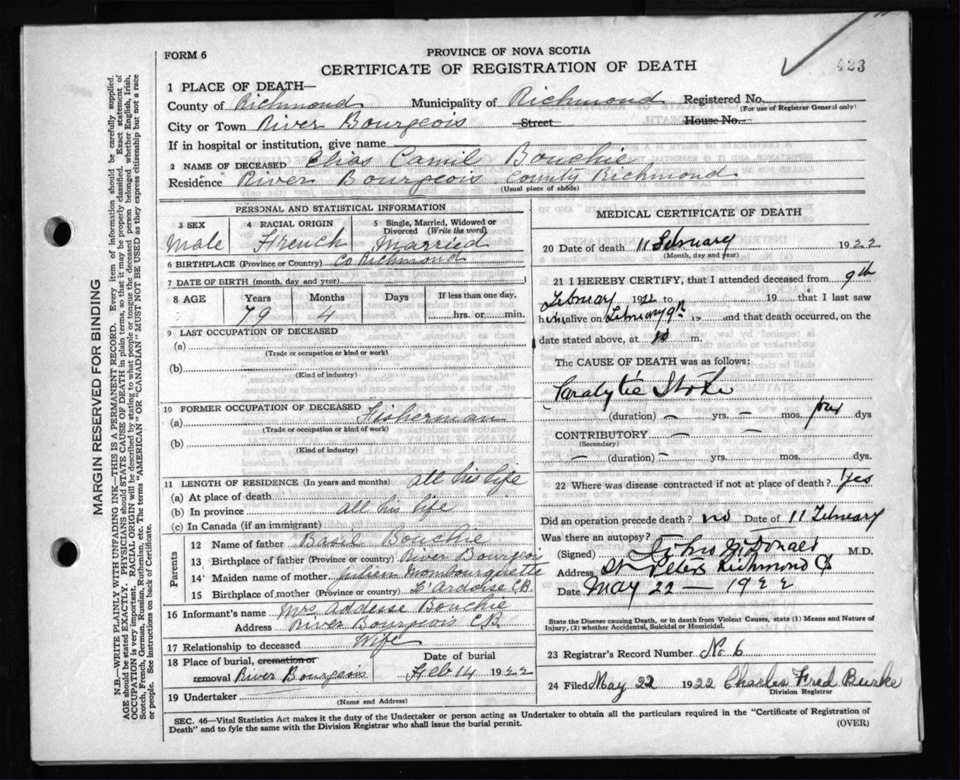 FORM 6
PROVINCE OF NOVA SCOTIA
CERTIFICATE OF REGISTRATION OF DEATH
423
1 PLACE OF DEATH—
County of Richmond Municipality of Richmond Registered No.
(For use of Registrar General only)
City or Town River Bourgeois Street House No.
If in hospital or institution, give name
2 NAME OF DECEASED Elias Camil Bouchie
Residence River Bourgeois County Richmond
(Usual place of abode)
PERSONAL AND STATISTICAL INFORMATION
3 SEX 4 RACIAL ORIGIN 5 Single, Married, Widowed or Divorced (Write the word)
Male French Married
6 BIRTHPLACE (Province or Country) Co Richmond
7 DATE OF BIRTH (month, day and year)
8 AGE Years Months Days If less than one day,
79 4 hrs. or min.
9 LAST OCCUPATION OF DECEASED
(a)
(Trade or occupation or kind or work)
(b)
(Kind of industry)
10 FORMER OCCUPATION OF DECEASED
(a) Fisherman
(Trade or occupation or kind of work)
(b)
(Kind of industry)
11 LENGTH OF RESIDENCE (In years and months)
(a) At place of death all his life
(b) In province all his life
(c) In Canada (if an immigrant)
Parents
12 Name of father Basil Bouchie
13 Birthplace of father (Province or country) River Bourgeois
14 Maiden name of mother Julien Mombourquette
15 Birthplace of mother (Province or country) L'Ardoise C.B.
16 Informant's name Mrs Addesse Bouchie
Address River Bourgeois C.B.
17 Relationship to deceased Wife
18 Place of burial, cremation or Date of burial
removal River Bourgeois Feb 14 1922
19 Undertaker
(Name and Address)
MEDICAL CERTIFICATE OF DEATH
20 Date of death 11 February 1922
(Month, day and year)
21 I HEREBY CERTIFY, that I attended deceased from 9th
February 1922 to 19 that I last saw
him alive on February 9th 19 and that death occurred, on
date stated above, at 10 m.
The CAUSE OF DEATH was as follows:
Paralytic Stroke
(duration) — yrs. — mos. four dys
CONTRIBUTORY — —
(Secondary)
— (duration) — yrs. — mos. dys.
22 Where was disease contracted if not at place of death? Yes
Did an operation precede death? no Date of 11 February
Was there an autopsy?
(Signed) M.D.
Address St Peters Richmond Co
Date May 22 — 1922
State the Disease causing Death, or in death from Violent Causes, state (1) Means and Nature of
Injury, (2) whether Accidental, Suicidal or Homicidal.
23 Registrar's Record Number No 6
24 Filed May 22 1922 Charles Fred Burke
Division Registrar
SEC. 46—Vital Statistics Act makes it the duty of the Undertaker or person acting as Undertaker to obtain all the particulars required in the "Certificate of Registration of
Death" and to fyle the same with the Division Registrar who shall issue the burial permit.
(OVER)
MARGIN RESERVED FOR BINDING
N.B.—WRITE PLAINLY WITH UNFADING INK—THIS IS A PERMANENT RECORD. Every item of information should be carefully supplied.
AGE should be stated EXACTLY. PHYSICIANS should STATE CAUSE OF DEATH in plain terms, so that it may be properly classified. Exact statement of
OCCUPATION is very important. RACIAL ORIGIN will be described by stating to what people or tongue the deceased person belonged whether English, Irish,
Scotch, French, German, Russian, Ruthenian, etc. The terms "AMERICAN" or "CANADIAN" MUST NOT BE USED as they express citizenship but not a race
or people. See instructions on back of Certificate.